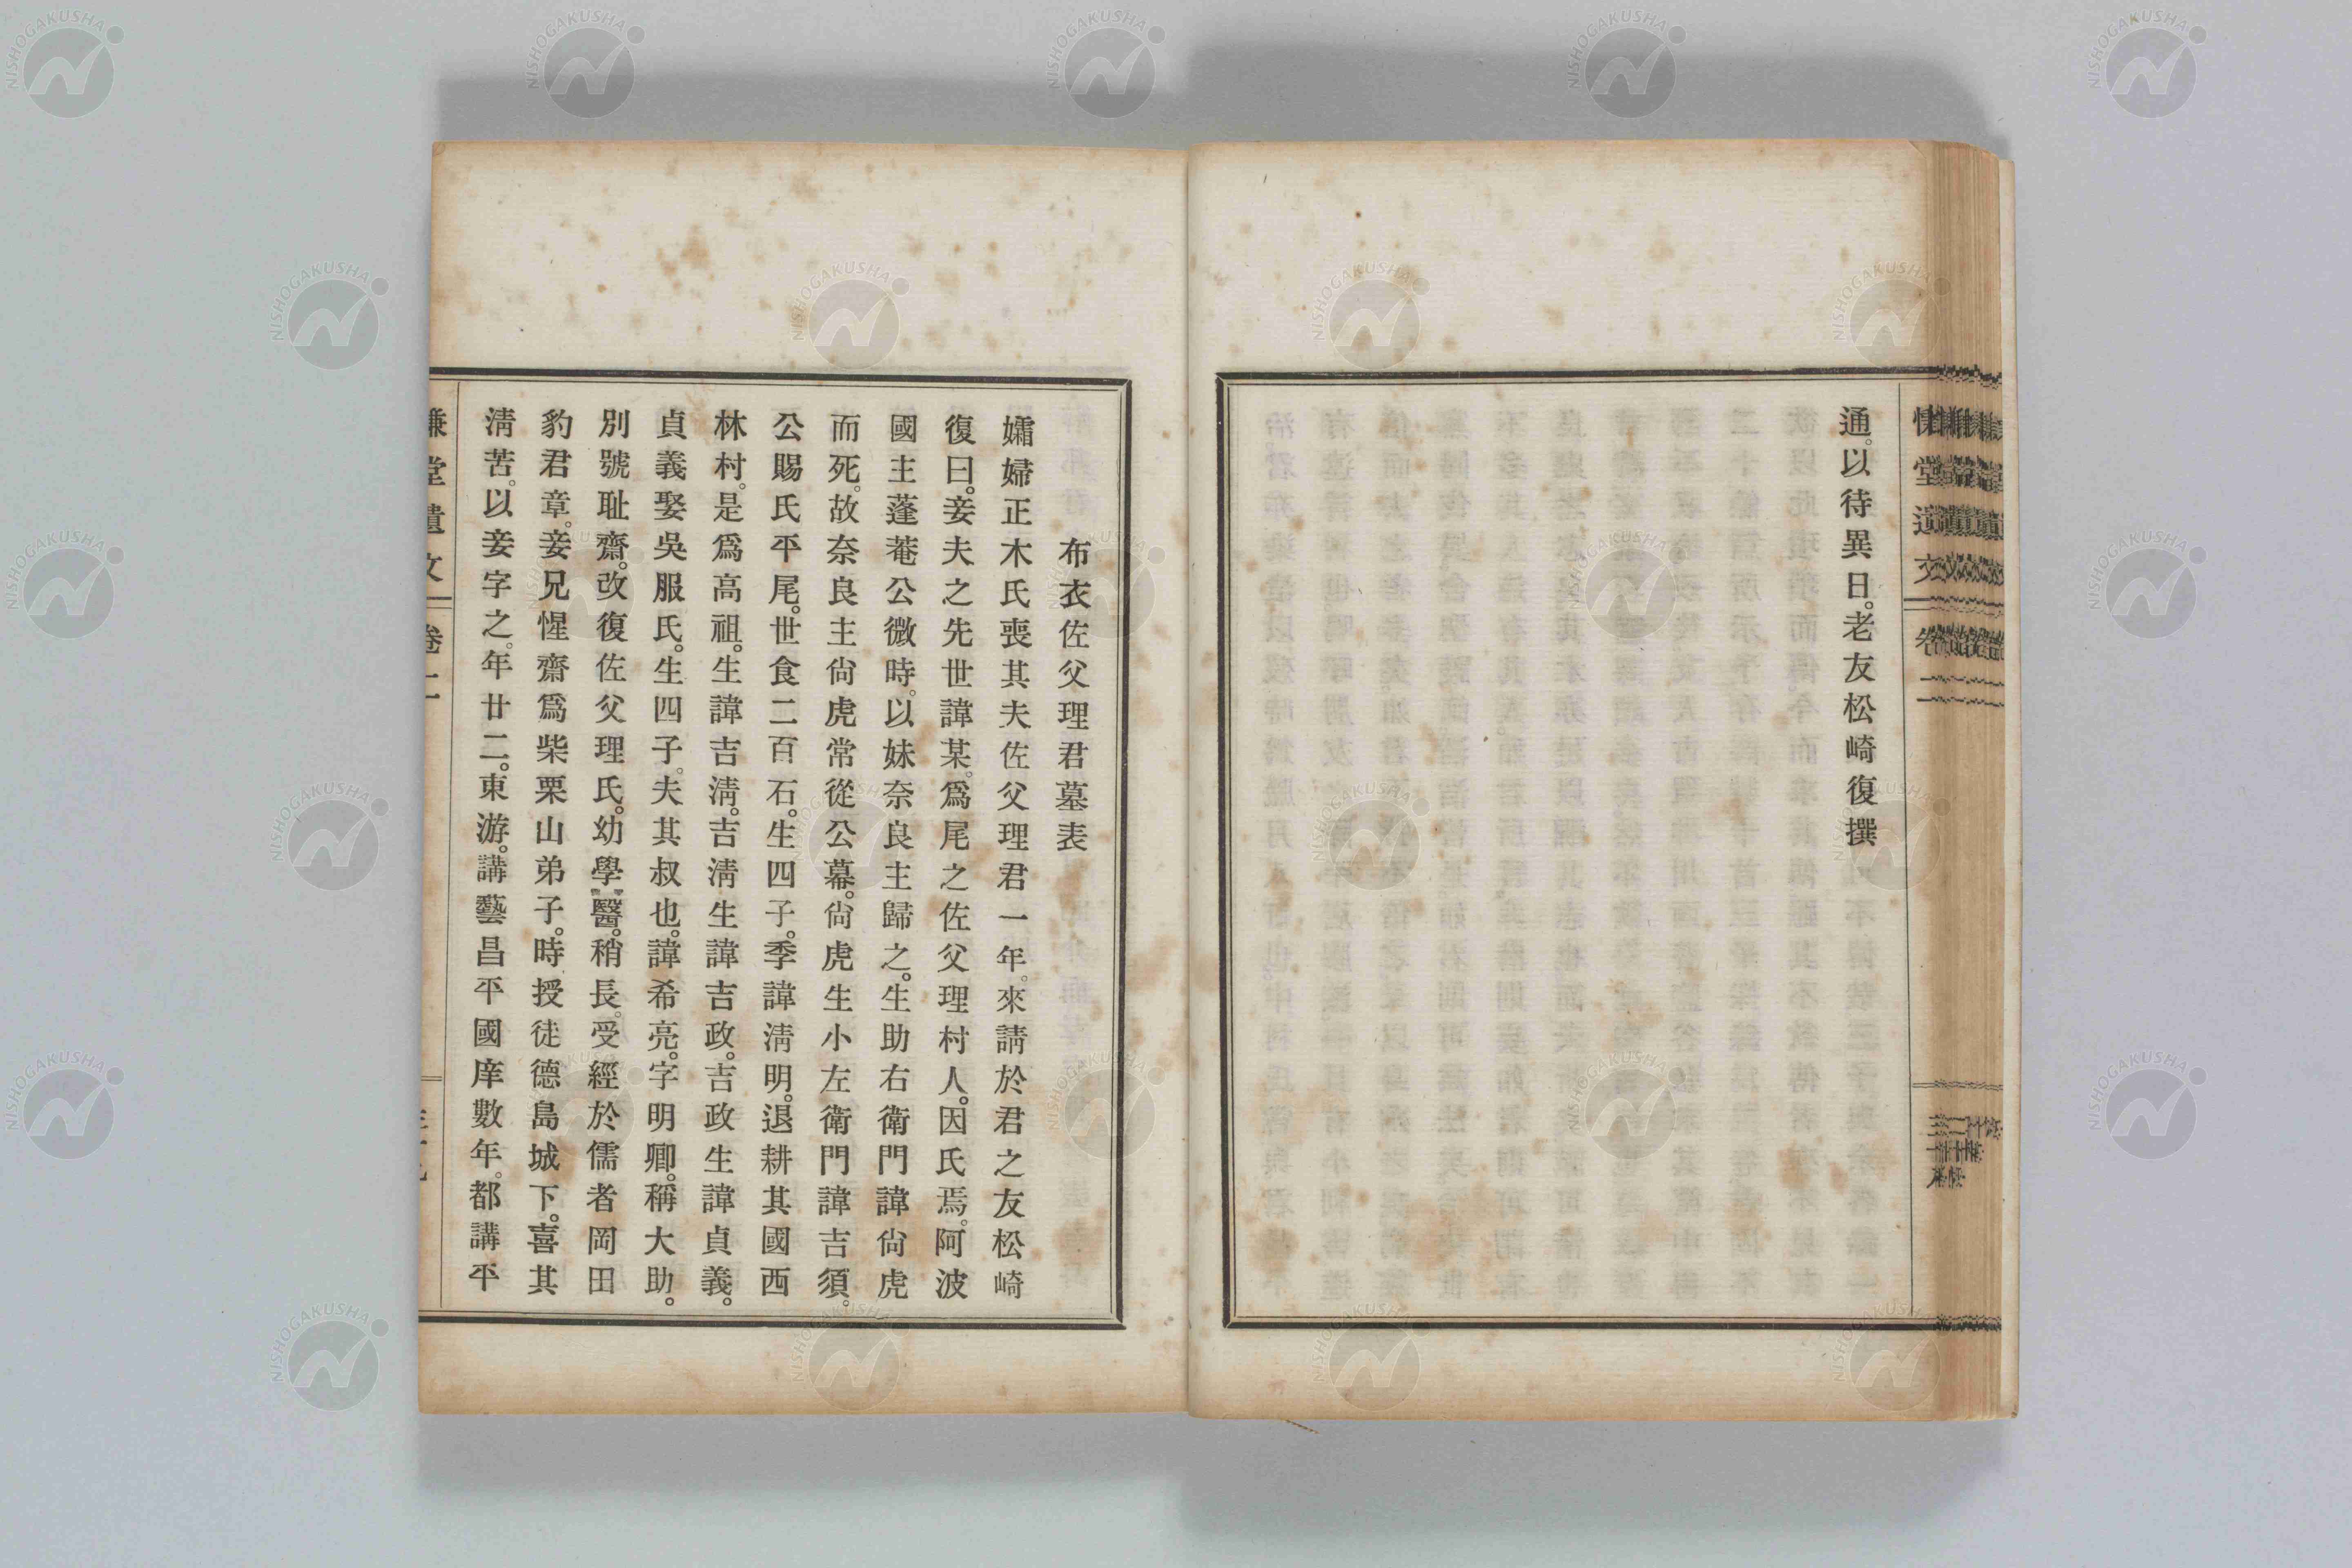 通。以待異日。老友松崎復撰
布衣佐父理君墓表
孀婦正木氏喪其夫佐父理君一年。來請於君之友松崎
復曰。妾夫之先世諱某。爲尾之佐父理村人。因氏焉。阿波
國主蓬菴公微時。以妹奈良主歸之。生助右衛門諱尙虎
而死。故奈良主尙虎常從公幕。尙虎生小左衛門諱吉須。
公賜氏平尾。世食二百石。生四子。季諱淸明。退耕其國西
林村。是爲高祖。生諱吉淸。吉淸生諱吉政。吉政生諱貞義。
貞義娶吳服氏。生四子。夫其叔也。諱希亮。字明卿。稱大助。
別號耻齋。改復佐父理氏。幼學醫。稍長。受經於儒者岡田
豹君章。妾兄惺齋爲柴栗山弟子。時授徒德島城下。喜其
淸苦。以妾字之。年廿二。東游。講藝昌平國庠數年。都講平
慊堂遺文 卷二
NISHOGAKUSHA